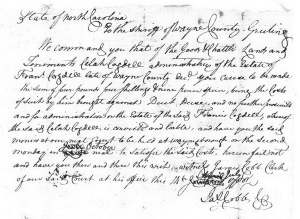 State of North Carolina
To the Sheriff of Wayne County Greeting
We command you that of the Goods & Chattles Lands and
Tenements Celah Cogdell administratrix of the Estate of
Francis Cogdell late of Wayne County decd you cause to be made
the sum of four pounds four shillings nine pence given, being the Costs
of Suit by him brought against Duet, and no further
for administration on the Estate of the said Francis Cogdell, whereof
the said Celah Cogdell is convicted and liable, and have you the said
monies at our next Court to be held at Waynesborough on the second
Monday in October next to Satisfy the said Costs herein fail not
and have you then and there this writ witness James Cobb Clerk
of our said Court at his office this 14
Jas Cobb, Clk